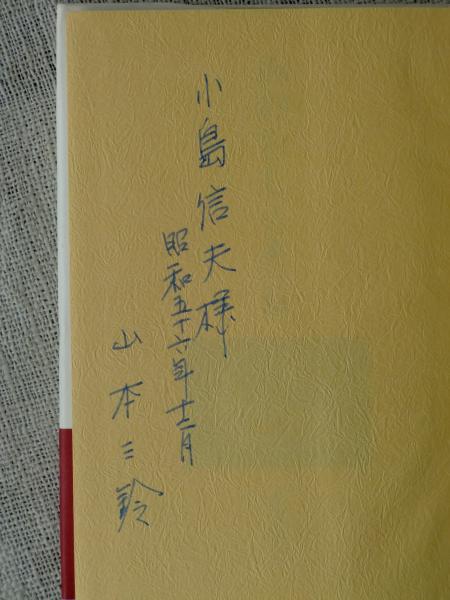 小島信夫様
昭和五十六年十二月
山本三鈴